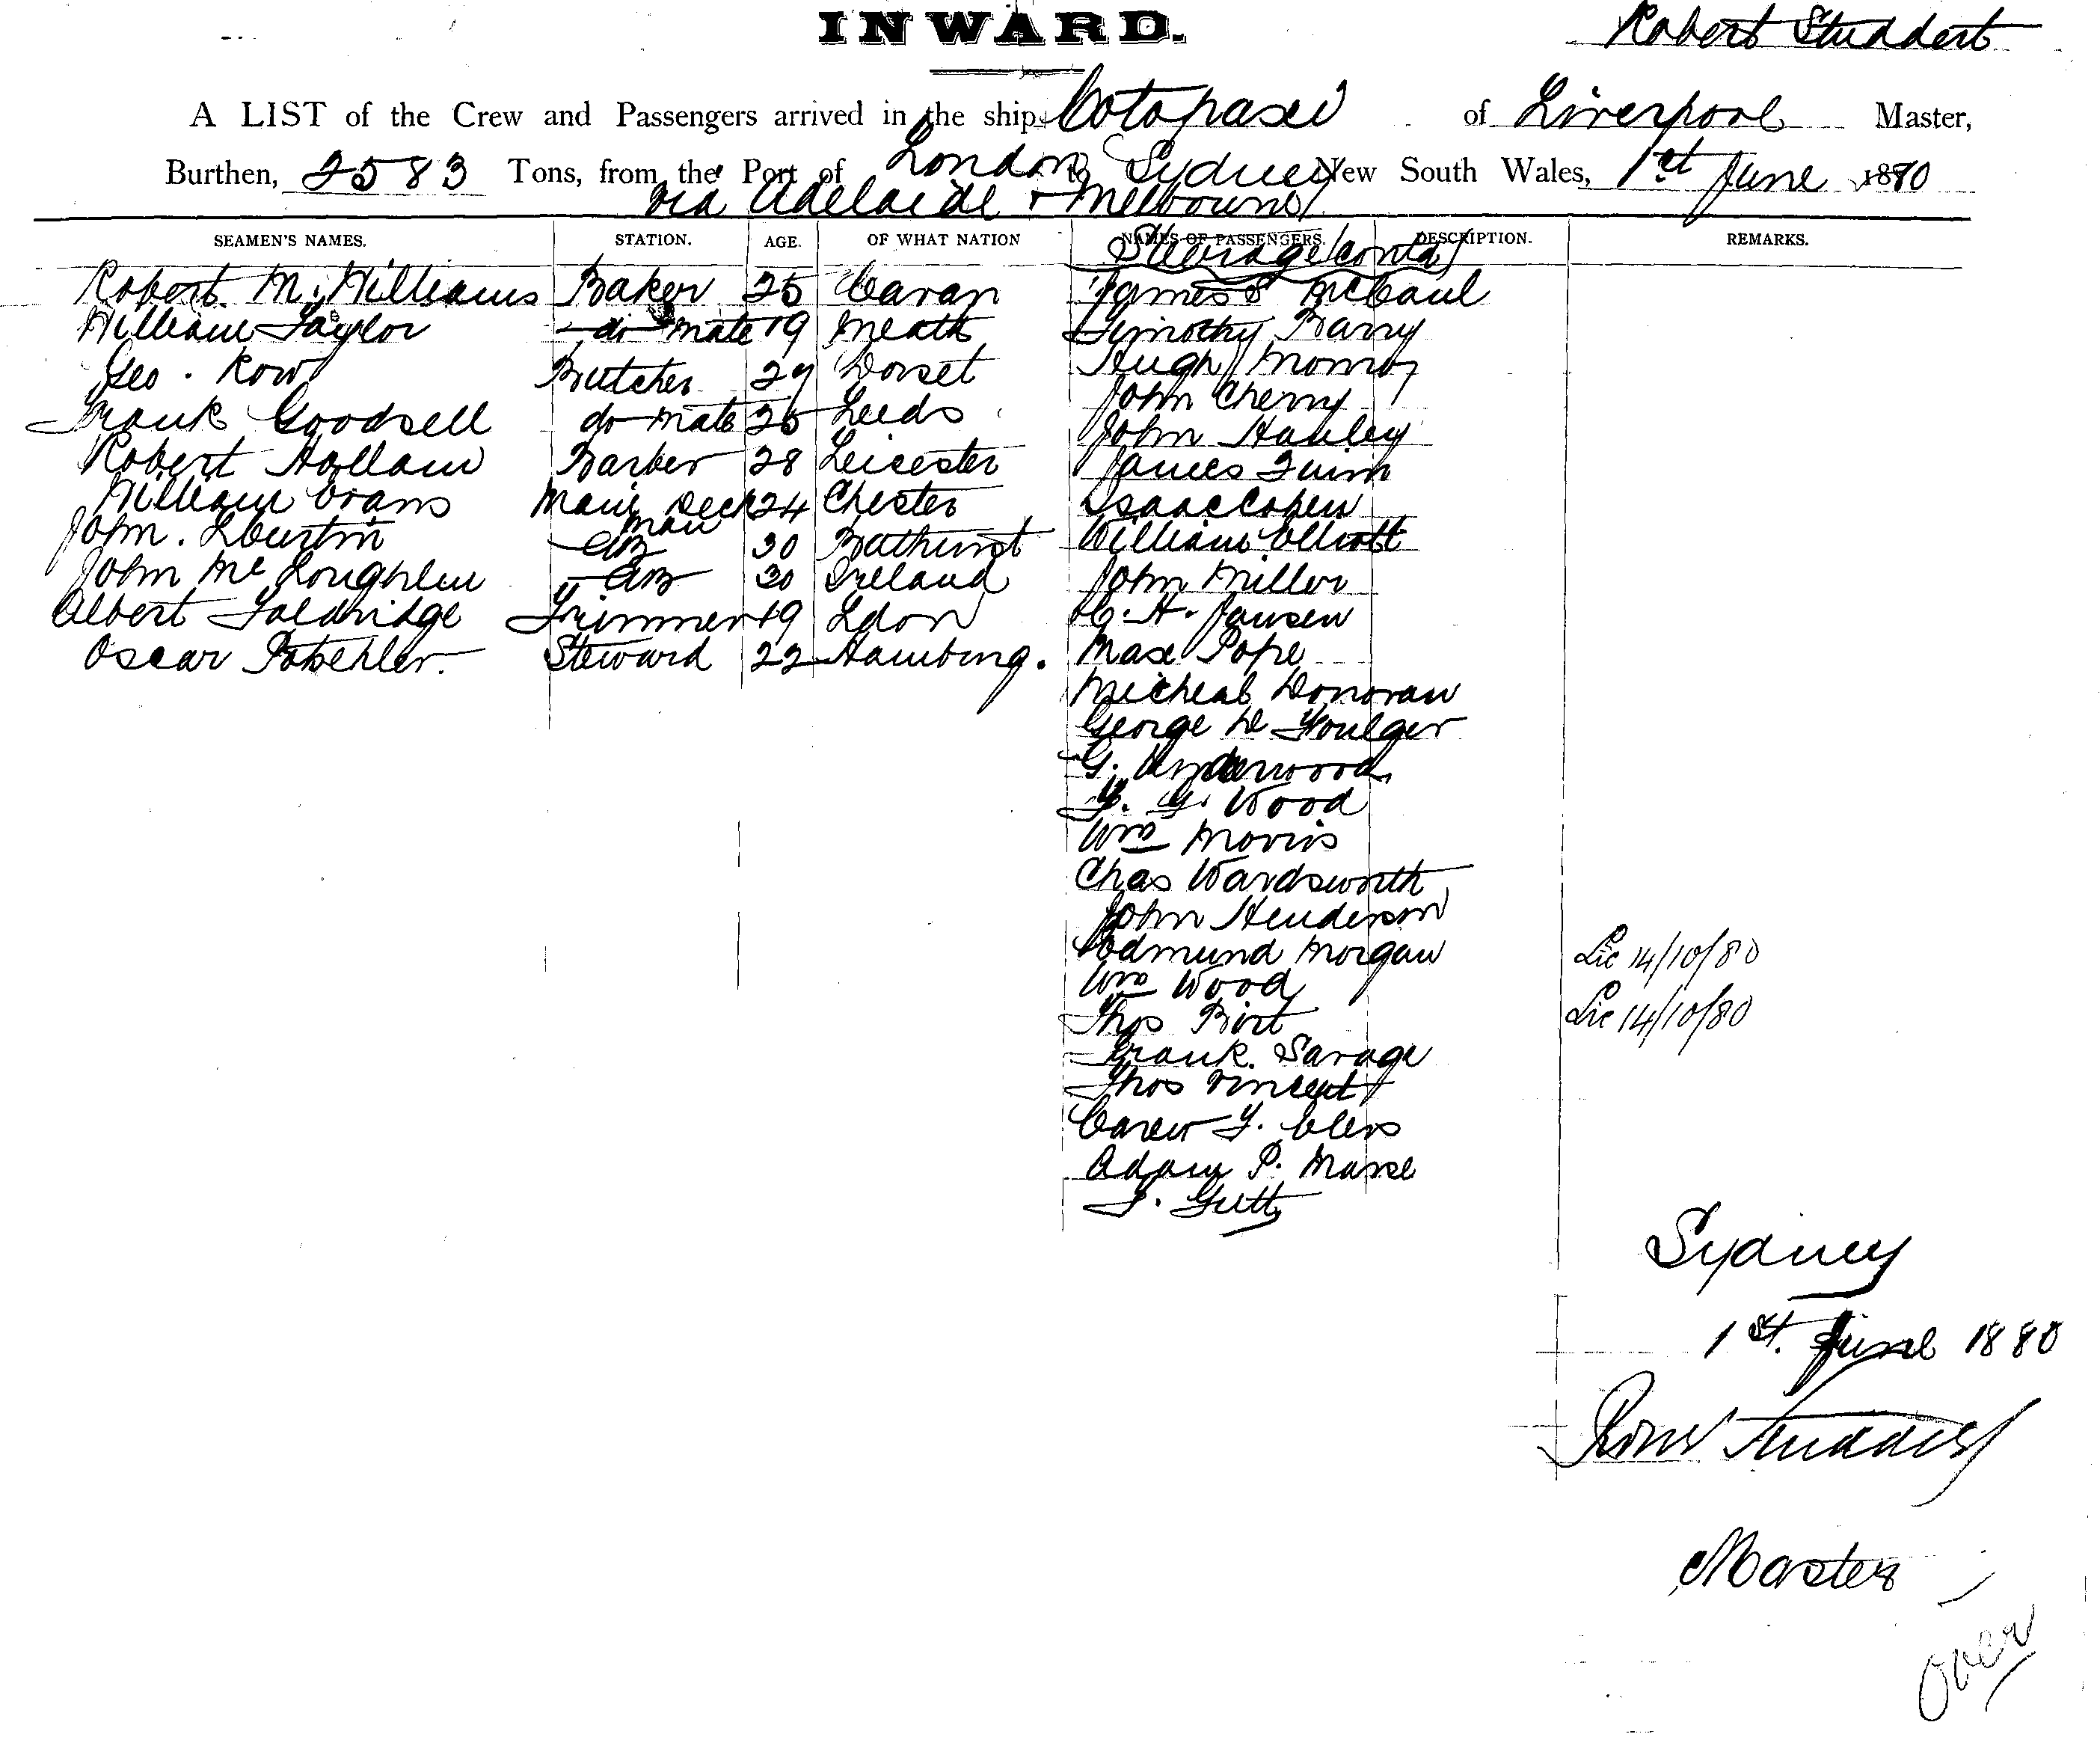 INWARD.
Robert Studdert
A LIST of the Crew and Passengers arrived in the ship Cotopaxi of Liverpool Master,
Burthen, 2583 Tons, from the Port of London to Sydney New South Wales, 1st June 1880
via Adelaide & Melbourne
SEAMEN'S NAMES. STATION. AGE. OF WHAT NATION NAMES OF PASSENGERS. DESCRIPTION. REMARKS.
Steerage (contd)
Robert M. Williams Baker 25 Cavan James S McCaul
William Taylor do mate 19 Meath Timothy Barry
Geo. Row Butcher 27 Dorset Hugh Monroy
Frank Goodsell do mate 26 Leeds John Cherry
Robert Hollam Barber 28 Leicester John Hanley
William Evans Main Deck man 24 Chester James Quinn
John. AB 30 Bathurst Isaac Cohen
John McLoughlin AB 30 Ireland William Elliott
Albert Trimmer 19 Ldon John Miller
Oscar Steward 22 Hamburg. C. H. Jansen
Max Pope
Micheal Donovan
George De Foulger
G. Underwood
F. G. Wood
Wm Morris
Chas Wardsworth
John Henderson
Edmund Morgan Lic 14/10/80
Wm Wood
Thos Birt Lic 14/10/80
Frank Savage
Thos Vincent
Carew F. Elers
Adam P. Masse
Sydney
1st. June 1880
Robt Studdert
Master
Over